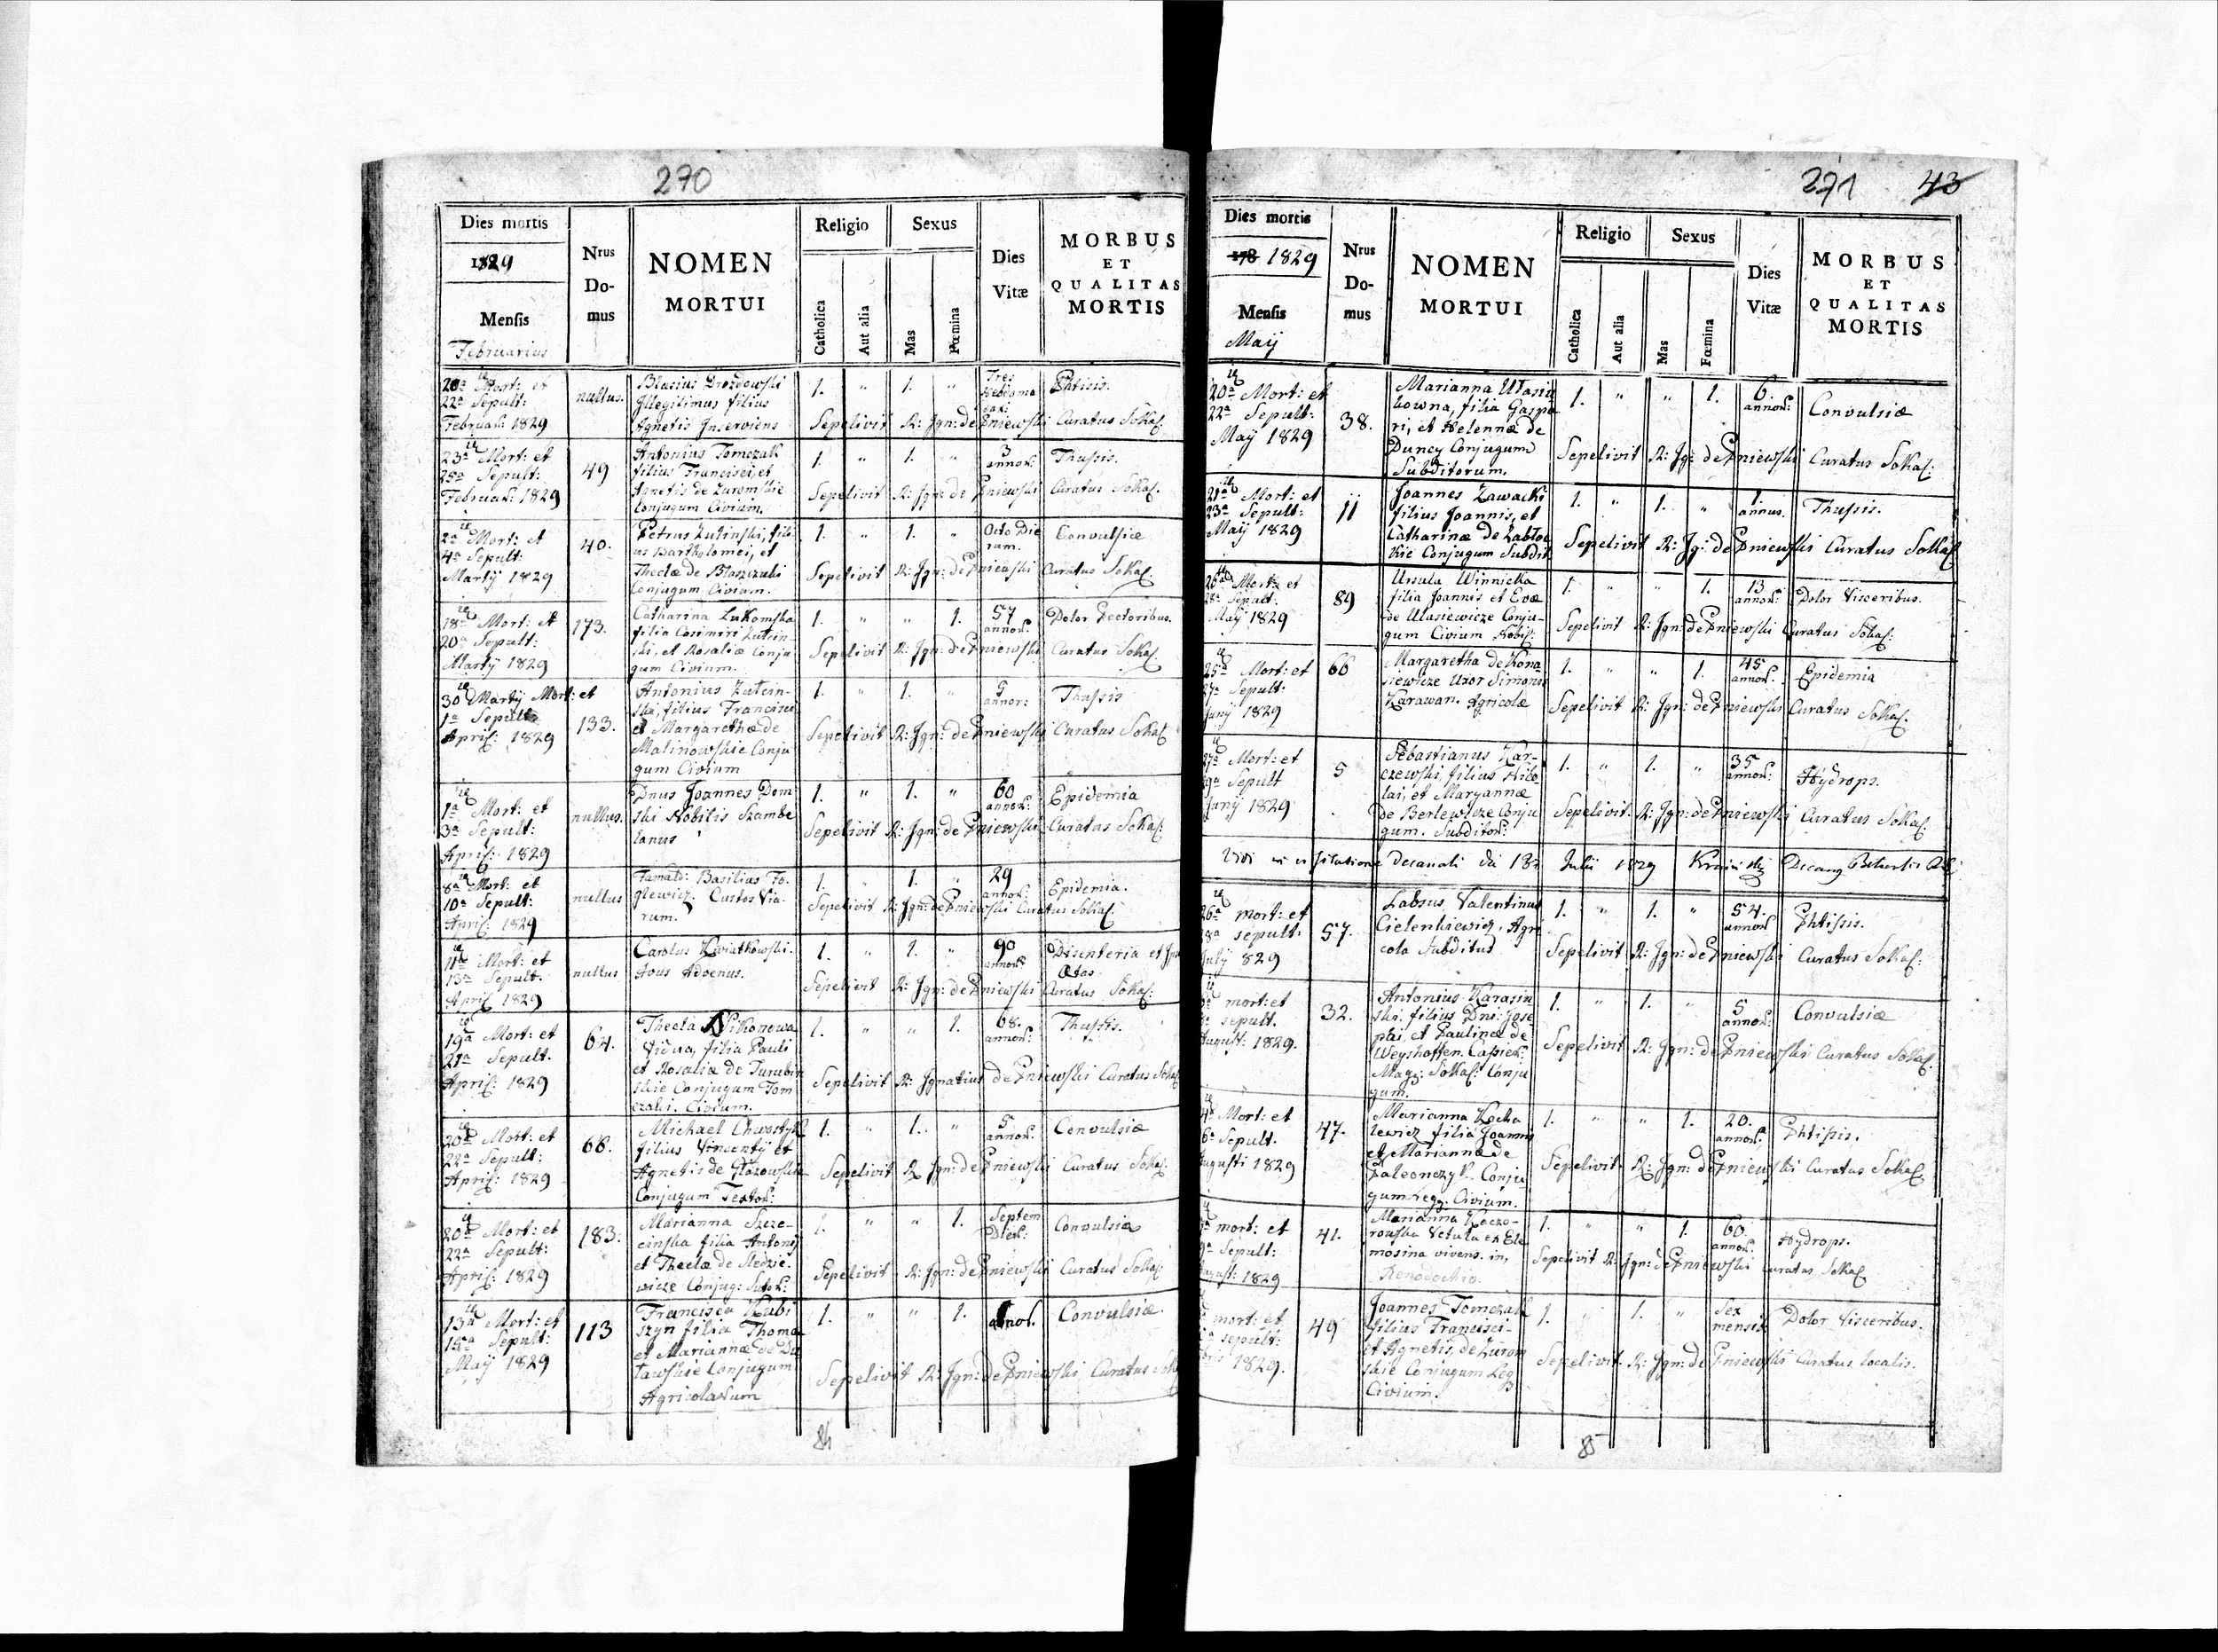 270
Dies mortis
1829
Mensis
Februarius
Nrus
Do-
mus
NOMEN
MORTUI
Religio
Catholica
Aut alia
Sexus
Mas
Fœmina
Dies
Vitæ
MORBUS
ET
QUALITAS
MORTIS
20a Mort: et
22a Sepult:
Februar: 1829
nullus.
Blasius Drozdowski
Illegitimus filius
Agnetis Inserviens
1. " 1. "
Tres
Phtisis.
Sepelivit R: Ign: de Pniewski Curatus Sokal:
23a Mort: et
25a Sepult:
Februar: 1829
49
Antonius Tomczak
filius Francisci, et
Agnetis de Zuromskie
Conjugum Civium.
1. " 1. "
3
annor:
Thussis.
Sepelivit R: Ign: de Pniewski Curatus Sokal:
2a Mort: et
4a Sepult:
Martij 1829
40.
Petrus Zulinski, fili
us Bartholomei, et
Theclæ de Blaszczuki
Conjugum Civium.
1. " 1. "
Octo Die
rum.
Convulsiæ
Sepelivit R: Ign: de Pniewski Curatus Sokal:
18a Mort: et
20a Sepult:
Martij 1829
173.
Catharina Lukomska
filia Casimiri Zutein-
ski, et Rosaliæ Conju
gum Civium.
1. " " 1.
57
annor:
Dolor Pectoribus.
Sepelivit R: Ign: de Pniewski Curatus Sokal:
30a Martij Mort: et
1a Sepult:
April: 1829
133.
Antonius Zutein-
ski, filius Francisci
et Margarethæ de
Malinowskie Conju
gum Civium
1. " 1. "
5
annor:
Thussis
Sepelivit R: Ign: de Pniewski Curatus Sokal:
1a Mort: et
3a Sepult:
April: 1829
nullus.
Dnus Joannes Dem
ski Nobilis Szambe
lanus
1. " 1. "
60
annor:
Epidemia
Sepelivit R: Ign: de Pniewski Curatus Sokal:
8a Mort: et
10a Sepult:
April: 1829
nullus
Famat: Basilius To-
glewicz Custos Via-
rum.
1. " 1. "
29
annor:
Epidemia.
Sepelivit R: Ign: de Pniewski Curatus Sokal:
11a Mort: et
13a Sepult.
April 1829
nullus
Carolus Kwiatkowski.
Avus Advenus.
1. " 1. "
90
annor:
Disinteria et
Ætas
Sepelivit R: Ign: de Pniewski Curatus Sokal:
19a Mort: et
21a Sepult.
April: 1829
64.
Thecla Nikonowa
Vidua, filia Pauli
et Rosaliæ de Turubin
skie Conjugum Tom
czaki. Civium.
1. " " 1.
68.
annor:
Thussis.
Sepelivit R: Ignatius de Pniewski Curatus Sokal
20a Mort: et
22a Sepult:
April: 1829
68.
Michael Chwostyk
filius Vincentij et
Agnetis de Glazowska
Conjugum Textor:
1. " 1. "
5
annor:
Convulsiæ
Sepelivit R: Ign: de Pniewski Curatus Sokal:
20a Mort: et
22a Sepult:
April: 1829
183.
Marianna Szcze-
cinska filia Antonij
et Theclæ de Sledzie-
wicze Conjug: Sutor:
1. " " 1.
Septem
Dier:
Convulsiæ
Sepelivit R: Ign: de Pniewski Curatus Sokal:
13a Mort: et
15a Sepult:
Maij 1829
113
Francisca Kubi
szyn filia Thoma
et Mariannæ de Du
tawskie Conjugum
Agricolarum
1. " " 1.
annor.
Convulsiæ.
Sepelivit R: Ign: de Pniewski Curatus
84
271 43
Dies mortis
178 1829
Mensis
Maij
Nrus
Do-
mus
NOMEN
MORTUI
Religio
Catholica
Aut alia
Sexus
Mas
Fœmina
Dies
Vitæ
MORBUS
ET
QUALITAS
MORTIS
20a Mort: et
22a Sepult:
Maij 1829
38.
Marianna Utasin
kowna, filia Gaspa
ri, et Helennæ de
Duncy Conjugum
Subditorum.
1. " " 1.
6
annor:
Convulsiæ
Sepelivit R: Ig: de Pniewski Curatus Sokal:
21a Mort: et
23a Sepult:
Maij 1829
11
Joannes Zawacki
filius Joannis, et
Catharinæ de Zabloc
kie Conjugum Subdit
1. " 1. "
1.
annus.
Thussis.
Sepelivit R: Ig: de Pniewski Curatus Sokal
26a Mort: et
28a Sepult:
Maij 1829
89
Ursula Winnicka
filia Joannis et Evæ
de Ulasiewicze Conju-
gum Civium Nobil:
1. " " 1.
13
annor:
Dolor Visceribus.
Sepelivit R: Ign: de Pniewski Curatus Sokal:
25a Mort: et
27a Sepult:
Junij 1829
66
Margaretha de Kona
siewicze Uxor Simonis
Karawan. Agricolæ
1. " " 1.
45
annor:
Epidemia
Sepelivit R: Ign: de Pniewski Curatus Sokal:
27a Mort: et
29a Sepult
Junij 1829
5
Sebastianus Kar-
czewski, filius Nico
lai, et Maryannæ
de Berlewicze Conju
gum. Subditor:
1. " 1. "
35
annor:
Hydrops.
Sepelivit R: Ign: de Pniewski Curatus Sokal:
Vidi in visitatione Decanali die 18a Julii 1829
26a mort: et
28a sepult:
July 829
57.
Labsus Valentinus
Cielenkiewicz, Agri
cola Subditus
1. " 1. "
54.
annor
Phtissis.
Sepelivit R: Ign: de Pniewski Curatus Sokal:
mort: et
sepult.
August: 1829.
32.
Antonius Karasin
ski, filius Dni: Jose
phi, et Paulinæ de
Weyshoffen. Cassier:
Mag: Sokal: Conju
gum.
1. " 1. "
5
annor:
Convulsiæ
Sepelivit R: Ign: de Pniewski Curatus Sokal:
4a Mort: et
6a Sepult.
Augusti 1829
47.
Marianna Kocha
lewicz filia Joannis
et Mariannæ de
Paleonczyk Conju
gum reg: Civium.
1. " " 1.
20.
annor:
Phtissis.
Sepelivit R: Ign: de Pniewski Curatus Sokal
mort: et
Sepult:
August: 1829
41.
Marianna Kaczo-
rowska Vetula ex Ele
mosina vivens. in,
Xenodochio.
1. " " 1.
60.
annor:
Hydrops.
Sepelivit R: Ign: de Pniewski Curatus Sokal
mort: et
sepult:
1829.
49
Joannes Tomczak
filius Francisci
et Agnetis, de Zurom
skie Conjugum Reg
Civium.
1. " 1. "
Sex
mensis
Dolor Visceribus.
Sepelivit R: Ign: de Pniewski Curatus localis.
85